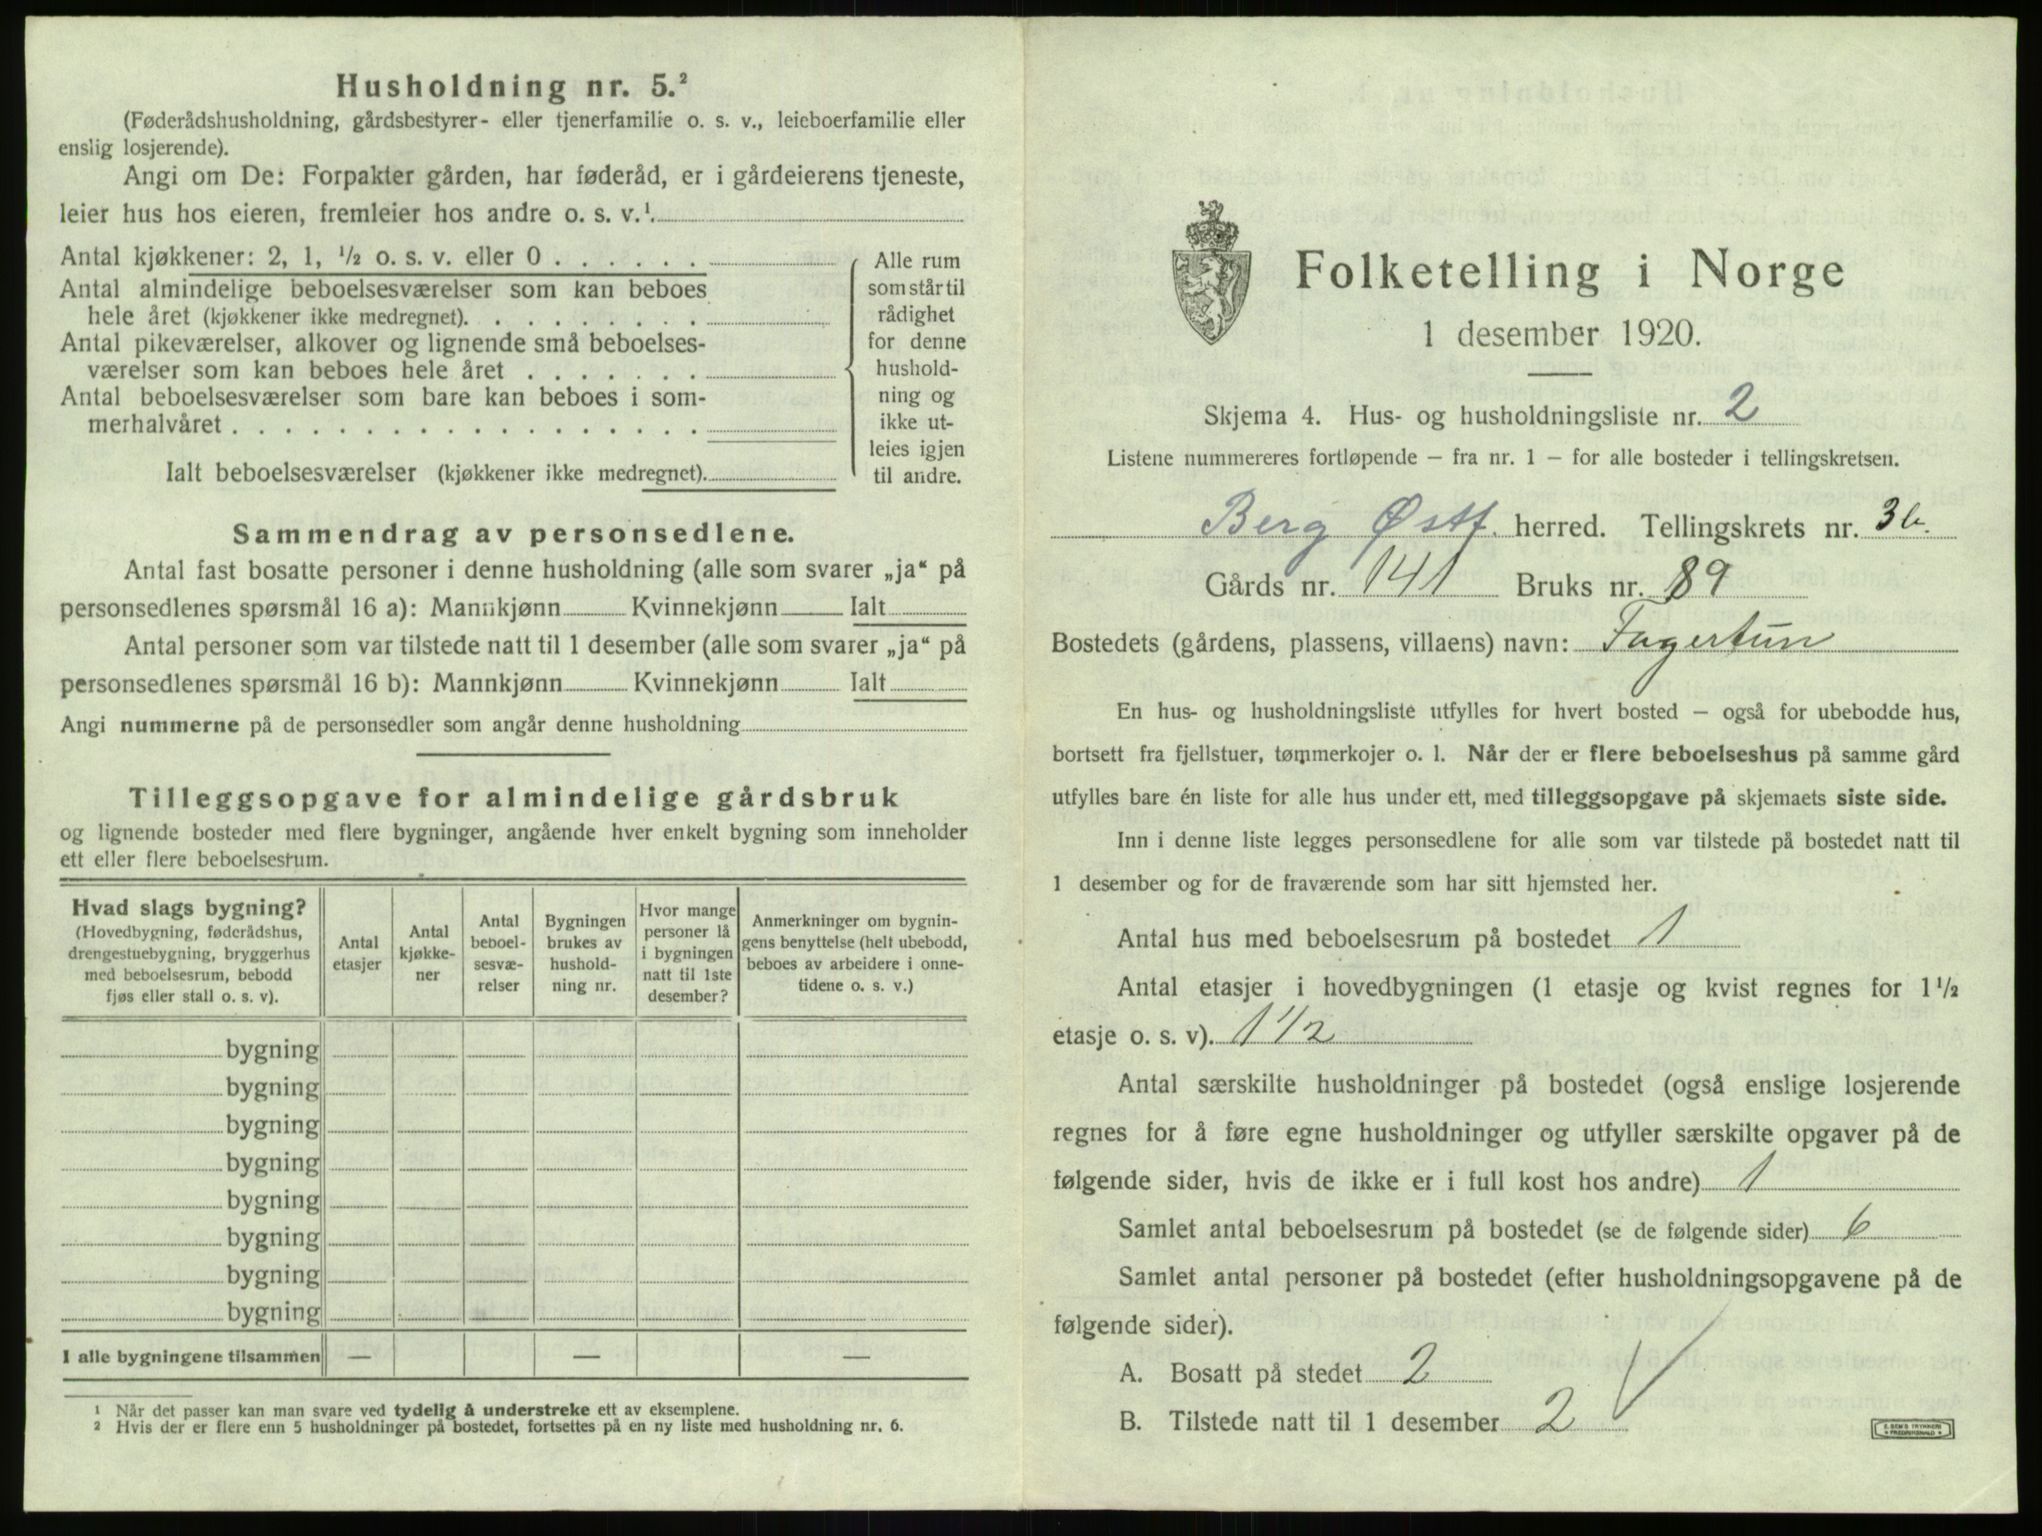 Husholdning nr. 5.²
(Føderådshusholdning, gårdsbestyrer- eller tjenerfamilie o. s. v., leieboerfamilie eller
enslig losjerende).
Angi om De: Forpakter gården, har føderåd, er i gårdeierens tjeneste,
leier hus hos eieren, fremleier hos andre o. s. v.¹.
Antal kjøkkener: 2, 1, ½ o. s. v. eller 0 . . . . . .
Antal almindelige beboelsesværelser som kan beboes
hele året (kjøkkener ikke medregnet). . . . . . . . .
Antal pikeværelser, alkover og lignende små beboelses-
værelser som kan beboes hele året . . . . . . .
Antal beboelsesværelser som bare kan beboes i som-
merhalvåret . . . . . . . . . . . . . . . . . .
Ialt beboelsesværelser (kjøkkener ikke medregnet).
Alle rum
som står til
rådighet
for denne
hushold-
ning og
ikke ut-
leies igjen
til andre.
Sammendrag av personsedlene.
Antal fast bosatte personer i denne husholdning (alle som svarer „ja“ på
personsedlenes spørsmål 16 a): Mannkjønn Kvinnekjønn Ialt
Antal personer som var tilstede natt til 1 desember (alle som svarer „ja“ på
personsedlenes spørsmål 16 b): Mannkjønn Kvinnekjønn Ialt
Angi nummerne på de personsedler som angår denne husholdning
Tilleggsopgave for almindelige gårdsbruk
og lignende bosteder med flere bygninger, angående hver enkelt bygning som inneholder
ett eller flere beboelsesrum.
Hvad slags bygning?
(Hovedbygning, føderådshus,
drengestuebygning, bryggerhus
med beboelsesrum, bebodd
fjøs eller stall o. s. v).
Antal
etasjer
Antal
kjøkke-
ner
Antal
beboel-
sesvæ-
relser
Bygningen
brukes av
hushold-
ning nr.
Hvor mange
personer lå
i bygningen
natt til 1ste
desember?
Anmerkninger om bygnin-
gens benyttelse (helt ubebodd,
beboes av arbeidere i onne-
tidene o. s. v.)
bygning
bygning
bygning
bygning
bygning
bygning
bygning
bygning
I alle bygningene tilsammen — — —
¹ Når det passer kan man svare ved tydelig å understreke ett av eksemplene.
² Hvis der er flere enn 5 husholdninger på bostedet, fortsettes på en ny liste med husholdning nr. 6.
Folketelling i Norge
1 desember 1920.
Skjema 4. Hus- og husholdningsliste nr. 2
Listene nummereres fortløpende — fra nr. 1 — for alle bosteder i tellingskretsen.
Berg Østf. herred. Tellingskrets nr. 3b.
Gårds nr. 141 Bruks nr. 89
Bostedets (gårdens, plassens, villaens) navn: Fagertun
En hus- og husholdningsliste utfylles for hvert bosted — også for ubebodde hus,
bortsett fra fjellstuer, tømmerkojer o. l. Når der er flere beboelseshus på samme gård
utfylles bare én liste for alle hus under ett, med tilleggsopgave på skjemaets siste side.
Inn i denne liste legges personsedlene for alle som var tilstede på bostedet natt til
1 desember og for de fraværende som har sitt hjemsted her.
Antal hus med beboelsesrum på bostedet 1
Antal etasjer i hovedbygningen (1 etasje og kvist regnes for 1½
etasje o. s. v). 1 1/2
Antal særskilte husholdninger på bostedet (også enslige losjerende
regnes for å føre egne husholdninger og utfyller særskilte opgaver på de
følgende sider, hvis de ikke er i full kost hos andre) 1
Samlet antal beboelsesrum på bostedet (se de følgende sider) 6
Samlet antal personer på bostedet (efter husholdningsopgavene på de
følgende sider).
A. Bosatt på stedet 2
B. Tilstede natt til 1 desember 2